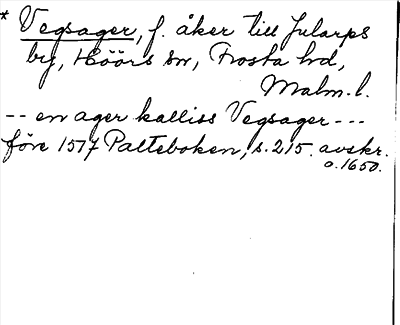 * Vegsager, f. åker till Jularps
by, Höörs sn, Frosta hd,
Malm. l.
-- en ager kalliss Vegsager ---
före 1517 Palteboken, s. 215. avskr.
o. 1650.